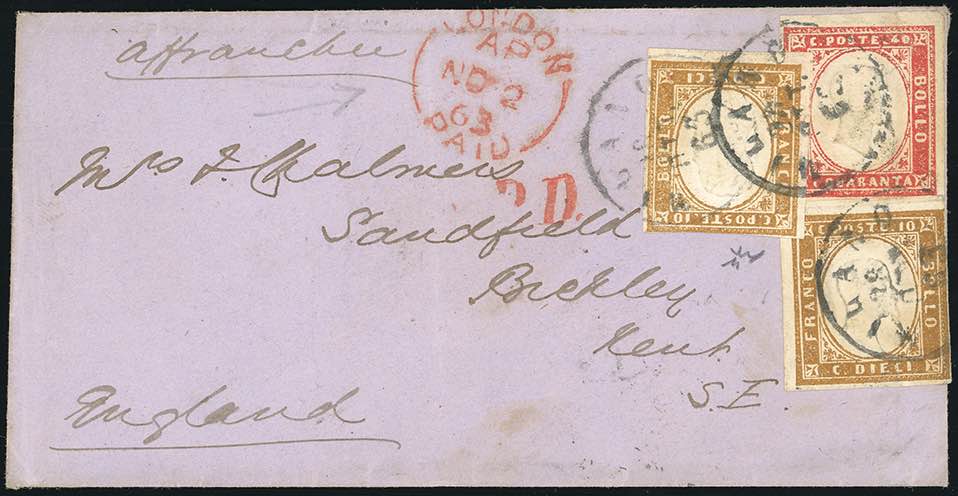 affranchie
LONDON
AP
NO 2
63
PAID
P.D.
Mrs J. Chalmers
Sandfield
Bickley
Kent
S.E.
England
DIECI
BOLLO
FRANCO
C. POSTE. 10
C. POSTE. 40
BOLLO
QUARANTA
C. POSTE. 10
FRANCO
BOLLO
C. DIECI